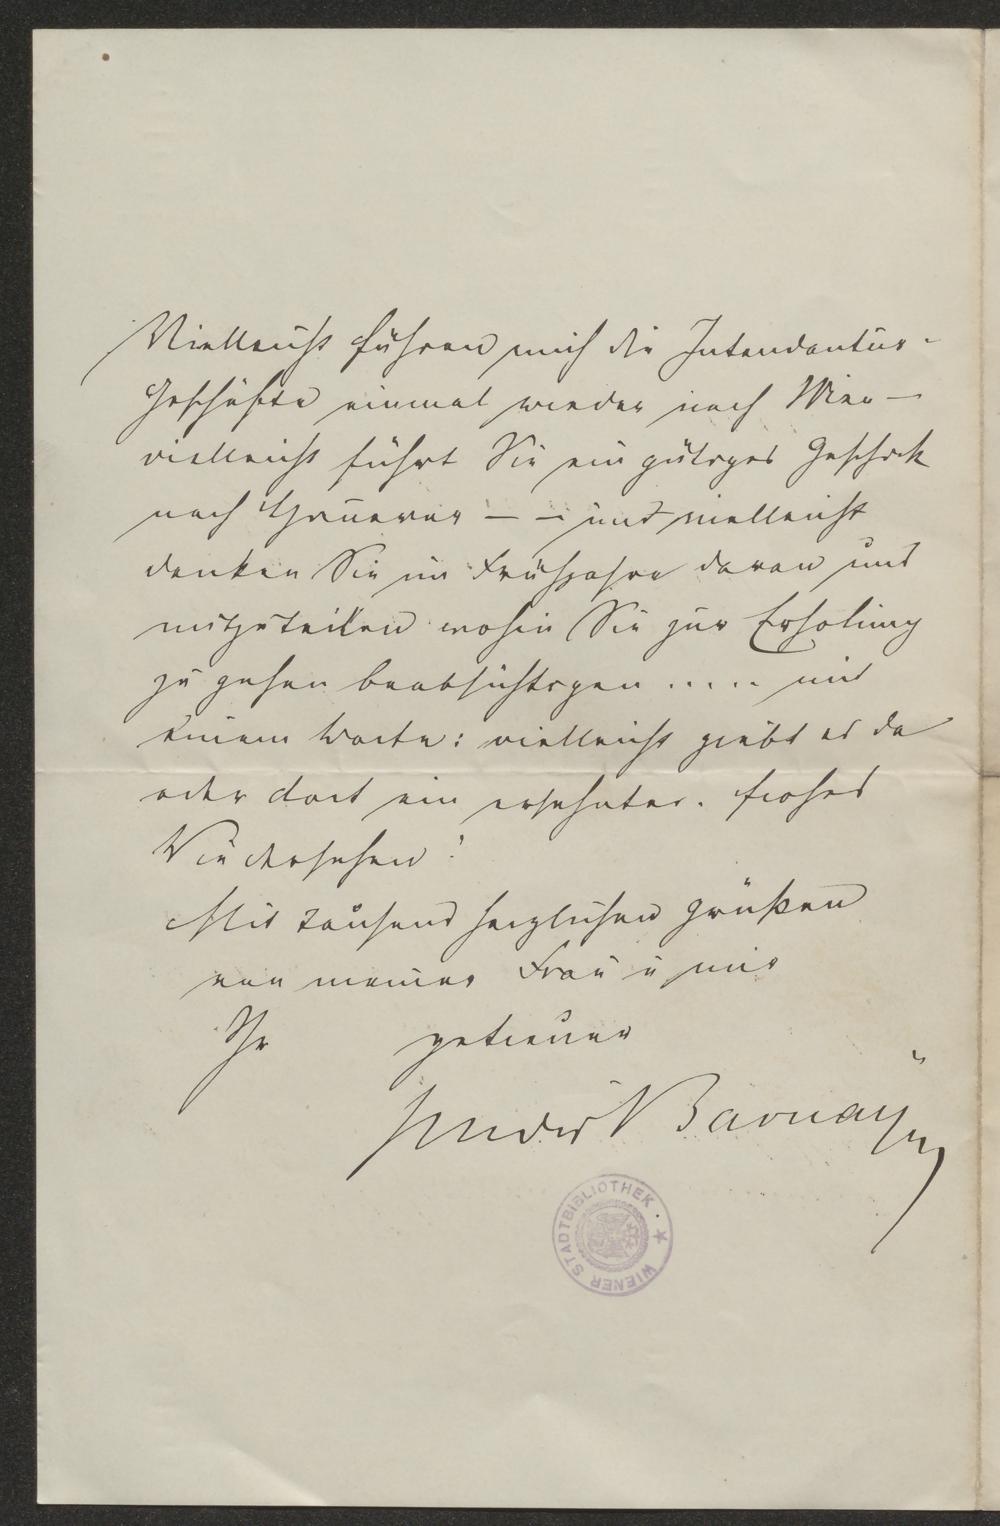 Vielleicht führen mich die Intendantur-
Geschäfte einmal wieder nach Wien —
vielleicht führt Sie ein gütiges Geschick
nach Hannover — — und vielleicht
denken Sie im Frühjahre daran uns
mitzuteilen wohin Sie zur Erholung
zu gehen beabsichtigen ..... mit
einem Worte: vielleicht giebt es da
oder dort ein ersehntes, frohes
Wiedersehen!
Mit tausend herzlichen Grüßen
von meiner Frau u mir
Ihr getreuer
Ludwig Barnay
WIENER STADTBIBLIOTHEK